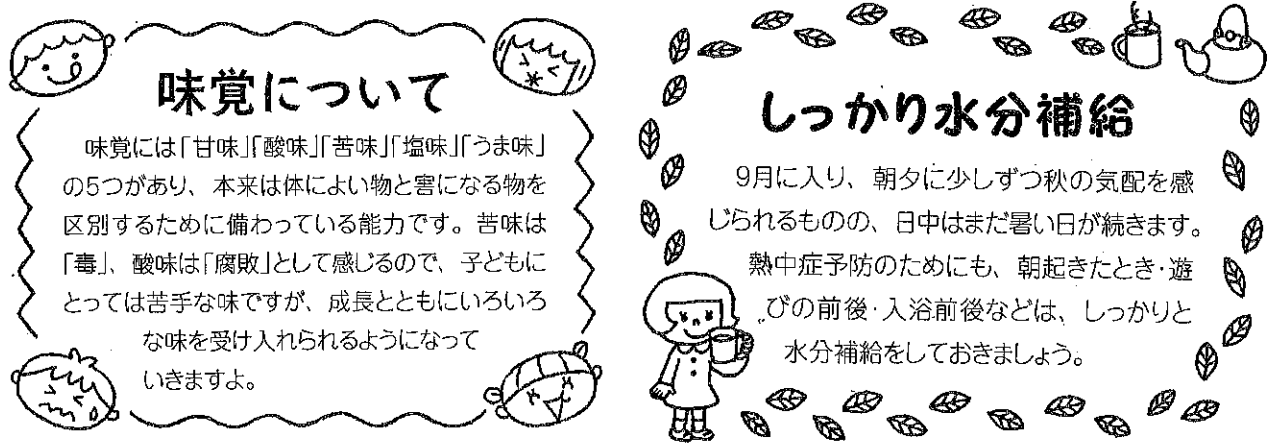 味覚について
味覚には「甘味」「酸味」「苦味」「塩味」「うま味」
の5つがあり、本来は体によい物と害になる物を
区別するために備わっている能力です。苦味は
「毒」、酸味は「腐敗」として感じるので、子どもに
とっては苦手な味ですが、成長とともにいろいろ
な味を受け入れられるようになって
いきますよ。
しっかり水分補給
9月に入り、朝夕に少しずつ秋の気配を感
じられるものの、日中はまだ暑い日が続きます。
熱中症予防のためにも、朝起きたとき・遊
びの前後・入浴前後などは、しっかりと
水分補給をしておきましょう。